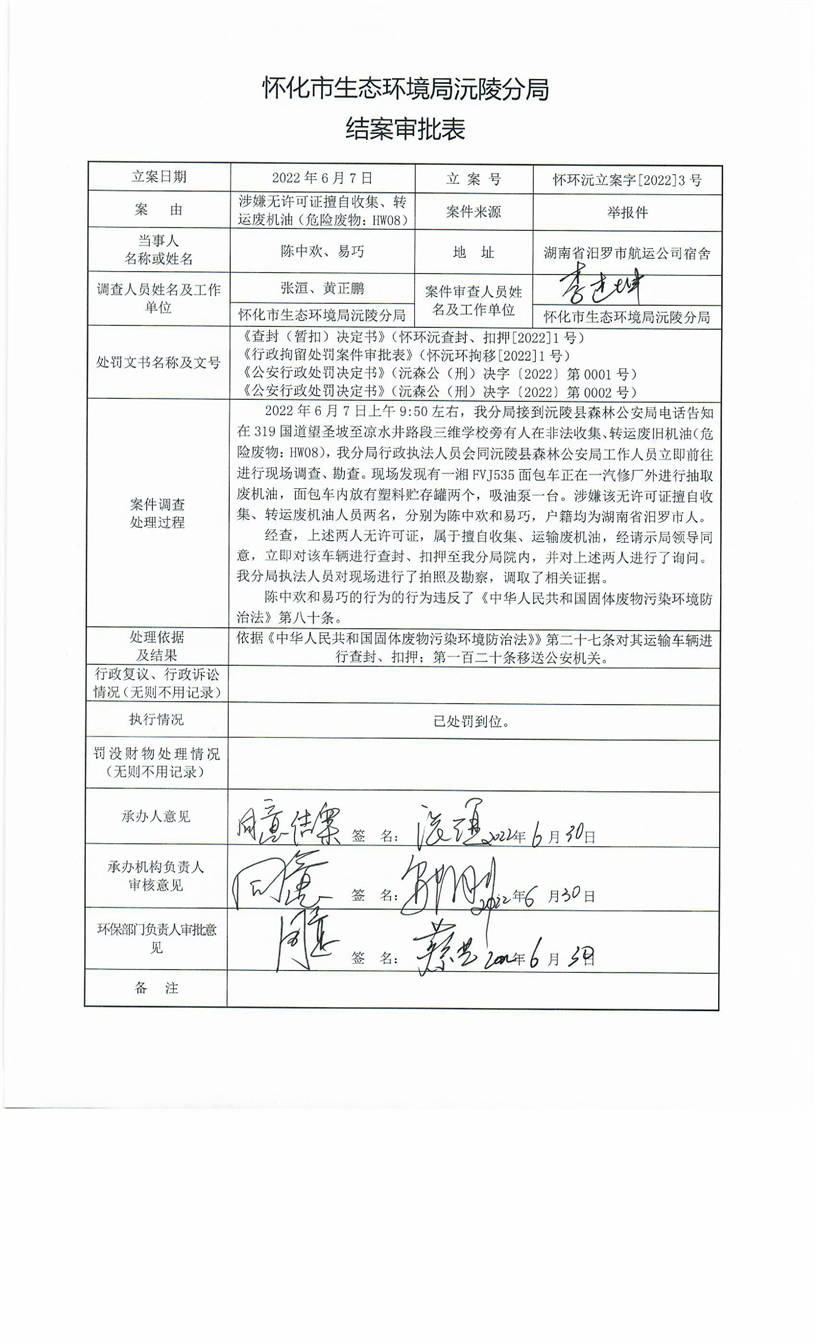 怀化市生态环境局沅陵分局
结案审批表
立案日期 2022年6月7日 立 案 号 怀环沅立案字[2022]3号
案 由 涉嫌无许可证擅自收集、转
运废机油（危险废物：HW08） 案件来源 举报件
当事人
名称或姓名 陈中欢、易巧 地 址 湖南省汨罗市航运公司宿舍
调查人员姓名及工作
单位 张洹、黄正鹏
怀化市生态环境局沅陵分局
案件审查人员姓
名及工作单位
怀化市生态环境局沅陵分局
处罚文书名称及文号
《查封（暂扣）决定书》（怀环沅查封、扣押[2022]1号）
《行政拘留处罚案件审批表》（怀沅环拘移[2022]1号）
《公安行政处罚决定书》（沅森公（刑）决字〔2022〕第0001号）
《公安行政处罚决定书》（沅森公（刑）决字〔2022〕第0002号）
案件调查
处理过程
2022年6月7日上午9:50左右，我分局接到沅陵县森林公安局电话告知
在319国道望圣坡至凉水井路段三维学校旁有人在非法收集、转运废旧机油（危
险废物：HW08），我分局行政执法人员会同沅陵县森林公安局工作人员立即前往
进行现场调查、勘查。现场发现有一湘FVJ535面包车正在一汽修厂外进行抽取
废机油，面包车内放有塑料贮存罐两个，吸油泵一台。涉嫌该无许可证擅自收
集、转运废机油人员两名，分别为陈中欢和易巧，户籍均为湖南省汨罗市人。
经查，上述两人无许可证，属于擅自收集、运输废机油，经请示局领导同
意，立即对该车辆进行查封、扣押至我分局院内，并对上述两人进行了询问。
我分局执法人员对现场进行了拍照及勘察，调取了相关证据。
陈中欢和易巧的行为的行为违反了《中华人民共和国固体废物污染环境防
治法》第八十条。
处理依据
及结果
依据《中华人民共和国固体废物污染环境防治法》》第二十七条对其运输车辆进
行查封、扣押；第一百二十条移送公安机关。
行政复议、行政诉讼
情况（无则不用记录）
执行情况 已处罚到位。
罚没财物处理情况
（无则不用记录）
承办人意见 同意结案 签 名： 2022年6月30日
承办机构负责人
审核意见 同意 签 名： 2022年6月30日
环保部门负责人审批意
见 同意 签 名： 年6月30日
备 注